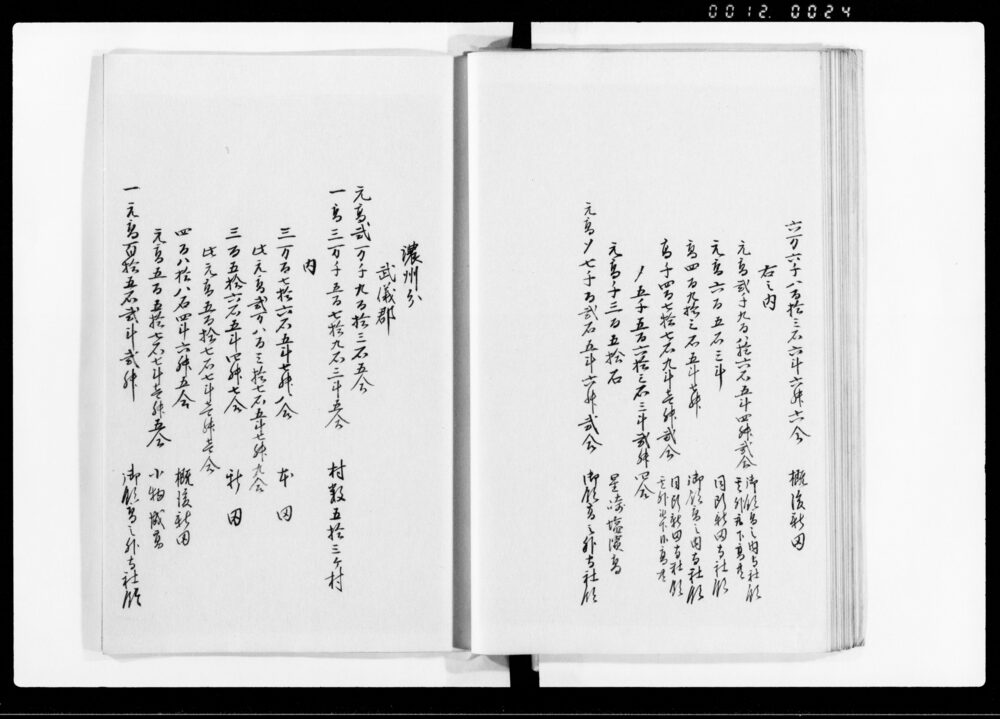 0012 0024
六万六千八百拾三石六斗六升六合 概后新田
右之内
元高弐千九百八拾六石五斗四升弐合 御領高之内寺社領
元高六百五石三斗 同断新田寺社領
高四百九拾三石五斗七升 御領高之内寺社領
高千四百七拾七石九斗壱升弐合 同断新田寺社領
〆五千五百六拾三石三斗弐升四合
元高千三百五拾石 星崎塩浜高
元高〆七千百弐石五斗六升弐合 御領高之外寺社領
濃州分
武儀郡
元高弐万千九百拾三石五合
一高三万千五百七拾九石三斗五合 村数五拾三ケ村
内
三万百七拾六石五斗七升八合 本田
此元高弐万八百三拾七石五斗七升九合
三百五拾六石五斗四升七合 新田
此元高五百拾七石七斗壱升壱合
四百八拾八石四斗六升五合 概后新田
元高五百五拾七石七斗壱升五合 小物成高
一元高百拾五石弐斗弐升 御領高之外寺社領